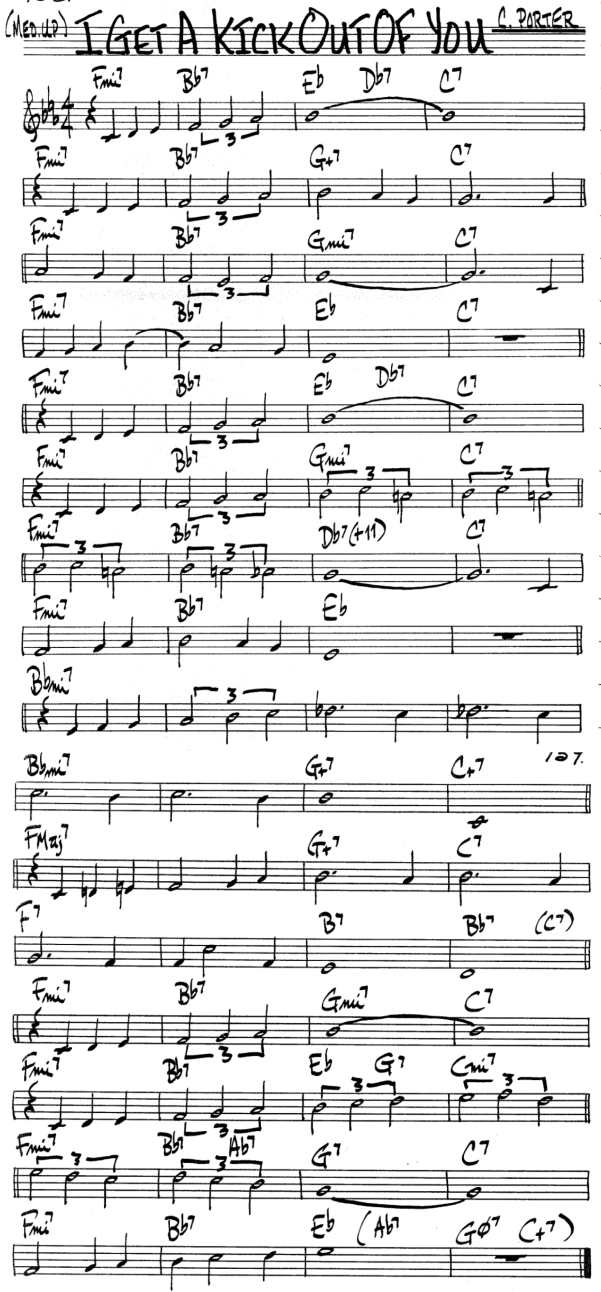 (MED.UP) I GET A KICK OUT OF YOU C. PORTER
Fmi7 Bb7 Eb Db7 C7
3
Fmi7 Bb7 G+7 C7
3
Fmi7 Bb7 Gmi7 C7
3
Fmi7 Bb7 Eb C7
Fmi7 Bb7 Eb Db7 C7
3
Fmi7 Bb7 Gmi7 C7
3 3 3
Fmi7 Bb7 Db7(+11) C7
3 3
Fmi7 Bb7 Eb
Bbmi7
3
127.
Bbmi7 G+7 C+7
FMaj7 G+7 C7
F7 B7 Bb7 (C7)
Fmi7 Bb7 Gmi7 C7
3
Fmi7 Bb7 Eb G7 Cmi7
3 3 3
Fmi7 Bb7 Ab7 G7 C7
3 3
Fmi7 Bb7 Eb (Ab7 Gø7 C+7)